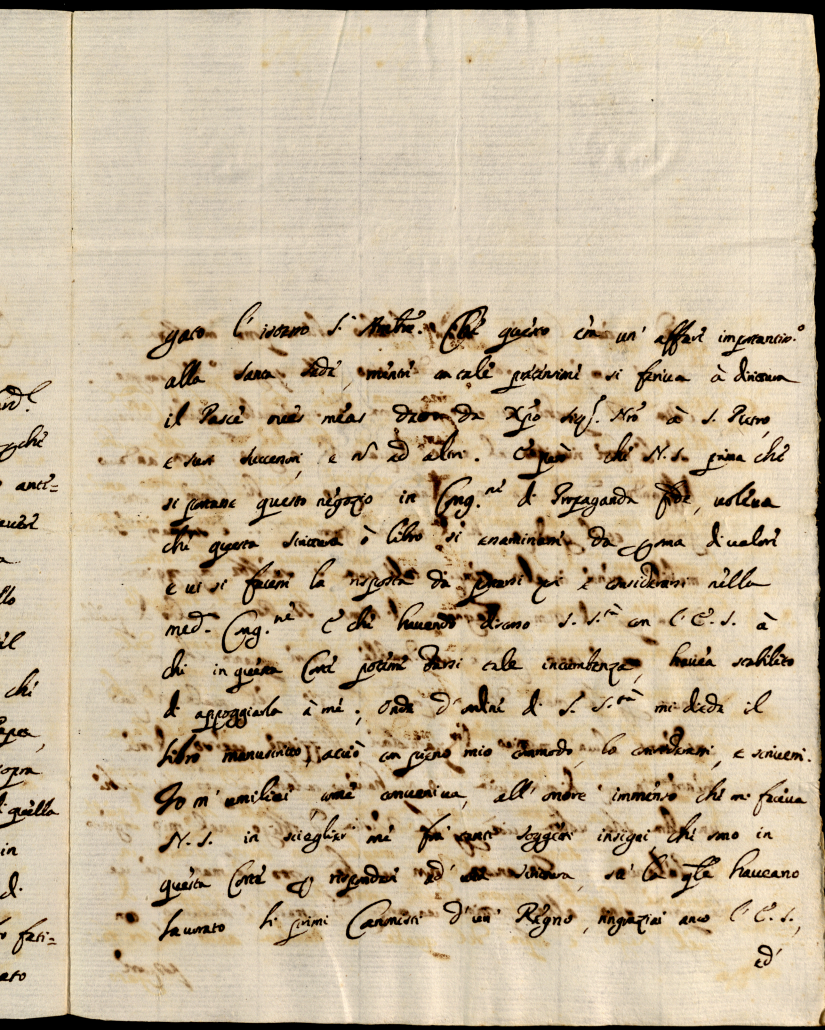 gato l'istesso S. Che questo era un' affare importantiss.º
alla Santa Sede, mentre con tale si feriva à dirittura
il Pasce oves meas dato da Xpo Sig.r Nrõ à S. Pietro,
e suoi successori, e nõ ad altri. E però che N. S. prima che
si portasse questo negozio in Cong.ne di Propaganda fide, voleva
che questa scrittura ò libro si esaminasse da psona di valore
e vi si facesse la risposta da poi e considerarsi nella
med. Cong.ne E che havendo discorso S. S.tà con l'E. S. à
chi in questa Corte potesse darsi tale incumbenza, haveva stabilito
di appoggiarla à me; onde d'ordine di S. S.tà mi diede il
libro manuscritto, acciò con pieno mio commodo, lo considerassi, e scrivessi.
Io m'umiliai come conveniva, all'onore immenso che mi faceva
N. S. in sciegliere me fra tanti soggetti insigni, che sono in
questa Corte p rispondere ad una scrittura, sù la qle haveano
lavorato li primi Canonisti d'un Regno, ringraziai anco l'E. S.,
ed
ord.
pche
anti=
che
sopra
quella
in
di
fati=